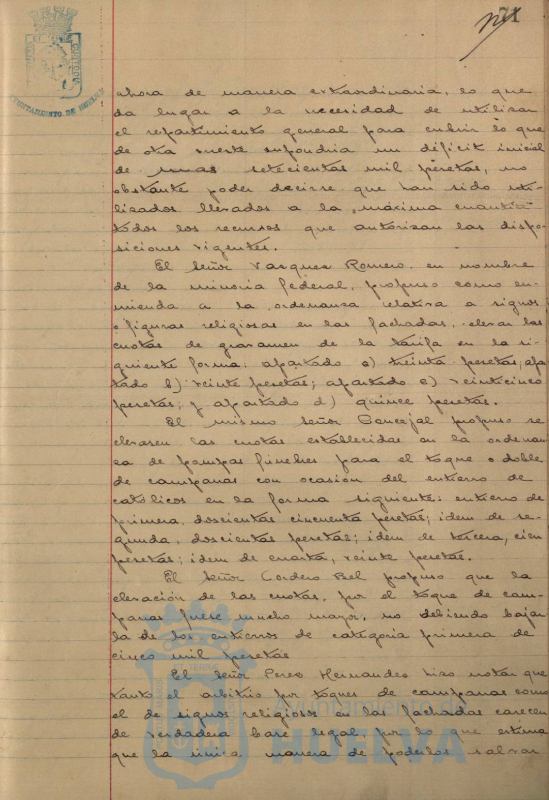 71
AYUNTAMIENTO DE HUELVA
ahora de manera extraordinaria, lo que
da lugar a la necesidad de utilizar
el repartimiento general para cubrir lo que
de otra suerte supondria un déficit inicial
de unas setecientas mil pesetas, no
obstante poder decirse que han sido uti-
lizados llevados a la máxima cuantia
todos los recursos que autorizan las dispo-
siciones vigentes.
El Señor Vasquez Romero, en nombre
de la minoria federal, propuso como en-
mienda a la ordenanza relativa a signos
o figuras religiosas en las fachadas, elevar las
cuotas de gravamen de la tarifa en la si-
guiente forma: apartado a) treinta pesetas; apar-
tado b) veinte pesetas; apartado c) veinticinco
pesetas; y apartado d) quince pesetas.
El mismo Señor Concejal propuso se
elevasen las cuotas establecidas en la ordenan-
za de pompas fúnebres para el toque o doble
de campanas con ocasión del entierro de
católicos en la forma siguiente: entierro de
primera, doscientas cincuenta pesetas; idem de se-
gunda, doscientas pesetas; idem de tercera, cien
pesetas; idem de cuarta, veinte pesetas.
El Señor Cordero Bel propuso que la
elevación de las cuotas, por el toque de cam-
panas fuese mucho mayor, no debiendo bajar
la de los entierros de categoria primera de
cinco mil pesetas
El Señor Perez Hernandez hizo notar que
tanto el arbitrio por toques de campanas como
el de signos religiosos en las fachadas carecen
de verdadera base legal, por lo que estima
que la única manera de poderlos salvar
Ayuntamiento de
HUELVA